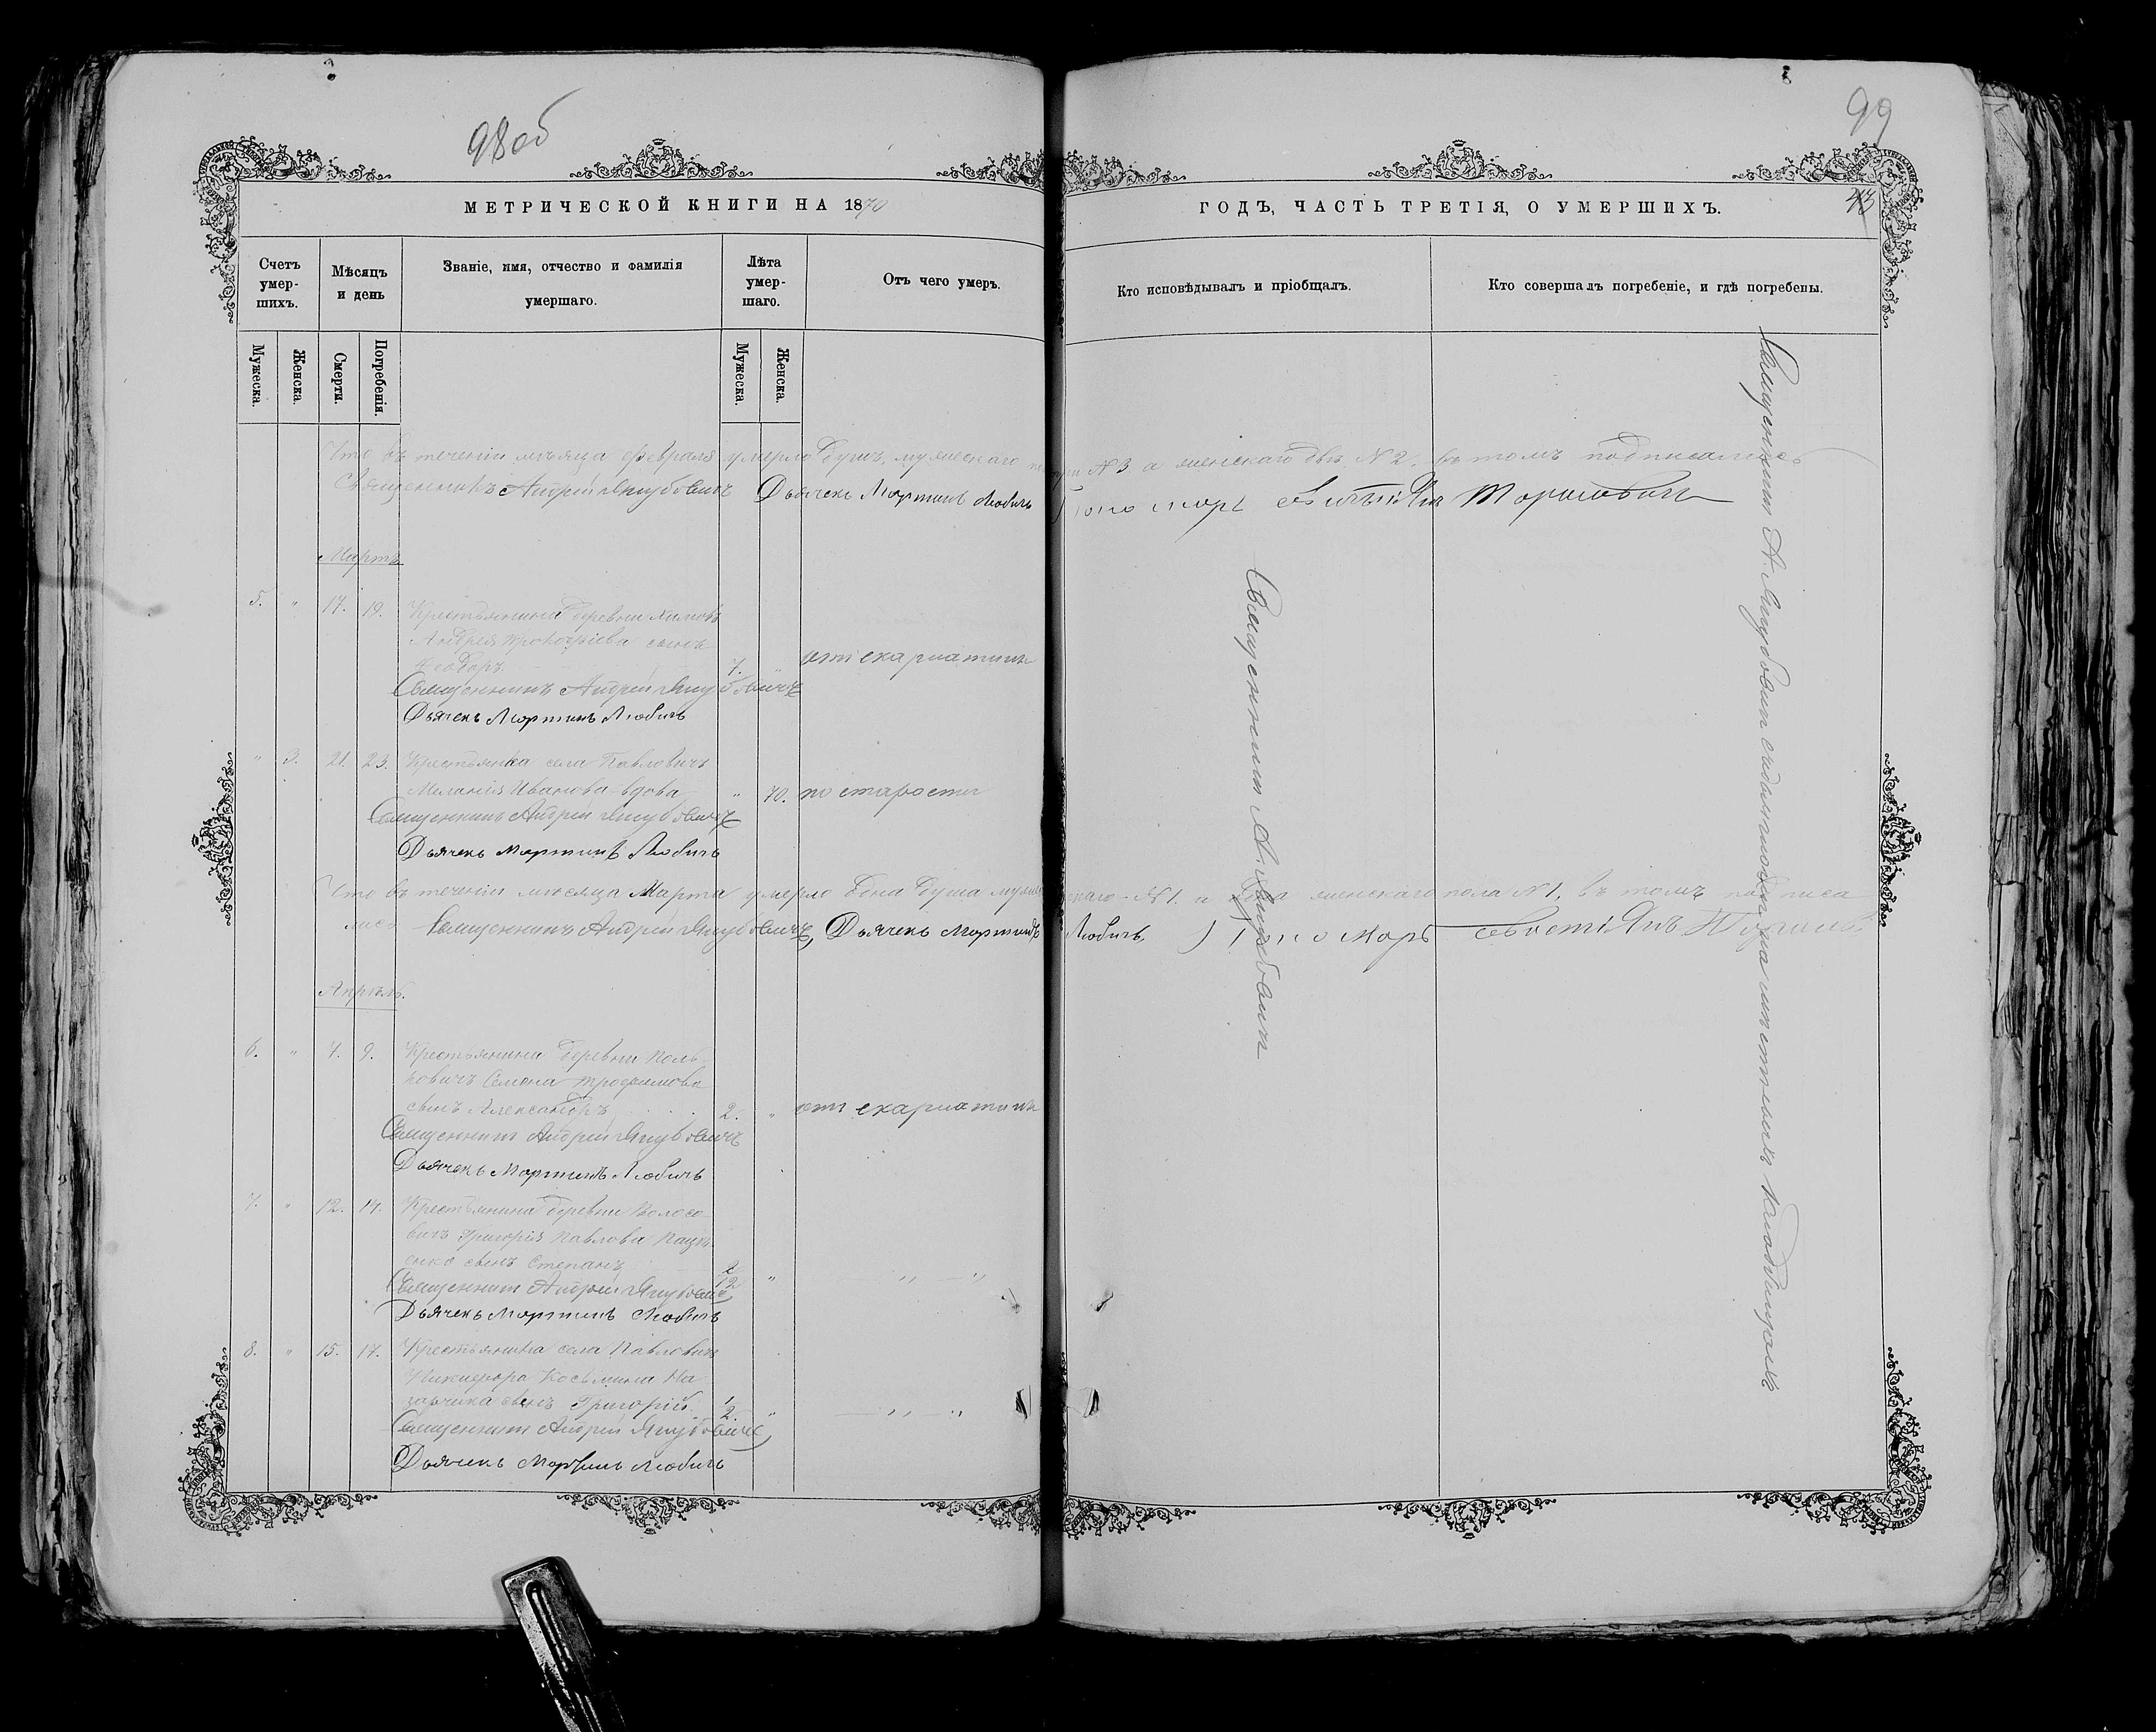 98об
99
МЕТРИЧЕСКОЙ КНИГИ НА 1870
ГОДЪ, ЧАСТЬ ТРЕТІЯ, О УМЕРШИХЪ.
Счетъ умер-шихъ.
Мѣсяцъ и день
Званіе, имя, отчество и фамилія умершаго.
Лѣта умер-шаго.
Отъ чего умеръ.
Кто исповѣдывалъ и пріобщалъ.
Кто совершалъ погребеніе, и гдѣ погребены.
Мужеска.
Женска.
Смерти.
Погребенія.
Мужеска.
Женска.
Что въ теченіи мѣсяца февраля умерло душъ, мужескаго №3 а женскаго двѣ №2. въ томъ подписались
Священникъ Андрей Якубовичъ Дьячекъ Мартинъ Любичъ Пономарь
Мартъ
5. " 17. 19. Крестьянина деревни
Андрея Прокофіева сынъ
Феодоръ 7. " отъ скарлатины
Священникъ Андрей Якубовичъ
Дьячекъ Мартинъ Любичъ
" 3. 21. 23. Крестьянка села Павловичъ
Меланія Иванова вдова " 70. по старости
Священникъ Андрей Якубовичъ
Дьячекъ Мартинъ Любичъ
Что въ теченіи мѣсяца Марта умерло одна душа мужескаго №1. и женскаго пола №1, въ томъ подписа
лись Священникъ Андрей Якубовичъ, Дьячекъ Мартинъ Любичъ, Пономарь
Апрѣль.
6. " 7. 9. Крестьянина деревни Поль
ковичъ Семена Трофимова
сынъ Александръ 2. " отъ скарлатины
Священникъ Андрей Якубовичъ
Дьячекъ Мартинъ Любичъ
7. " 12. 14. Крестьянина деревни Волосо
вичъ Григорія Павлова
сынъ Степанъ 2/12 " " — "
Священникъ Андрей Якубовичъ
Дьячекъ Мартинъ Любичъ
8. " 15. 17. Крестьянина села Павловичъ
Никифора Косьмина На
зарчика сынъ Григорій. 1/2. " — " — "
Священникъ Андрей Якубовичъ
Дьячекъ Мартинъ Любичъ
Священникъ А. Якубовичъ
Священникъ А. Якубовичъ на мѣстномъ кладбищѣ